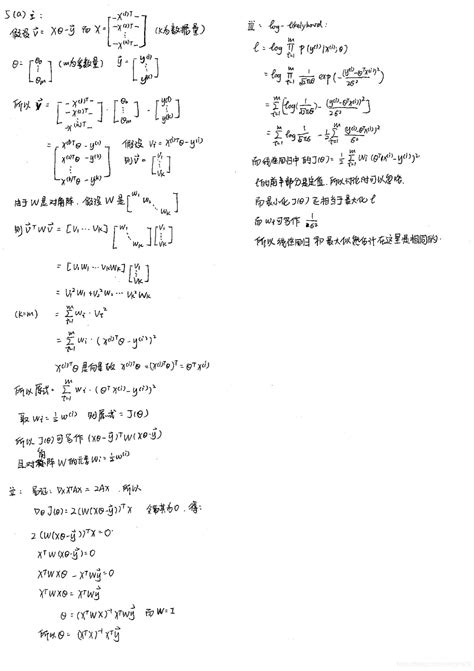 5(a) i:
假设 v⃗ = Xθ-y⃗ 而 X = [-x⁽¹⁾ᵀ- -x⁽²⁾ᵀ- ⋮ -x⁽ᵏ⁾ᵀ-] (k为数据量)
θ = [θ₀ ⋮ θₘ] (m为参数量) y⃗ = [y⁽¹⁾ ⋮ y⁽ᵏ⁾]
所以 v⃗ = [-x⁽¹⁾ᵀ- -x⁽²⁾ᵀ- ⋮ -x⁽ᵏ⁾ᵀ-] · [θ₀ ⋮ θₘ] - [y⁽¹⁾ ⋮ y⁽ᵏ⁾]
= [x⁽¹⁾ᵀθ - y⁽¹⁾ x⁽²⁾ᵀθ - y⁽²⁾ ⋮ x⁽ᵏ⁾ᵀθ - y⁽ᵏ⁾] 假设 Vᵢ = x⁽ⁱ⁾ᵀθ - y⁽ⁱ⁾
则 v⃗ = [V₁ ⋮ Vₖ]
由于W是对角阵, 假设 W是 [W₁ W₂ ⋱ Wₖ]
则 v⃗ᵀWv⃗ = [V₁ ⋯ Vₖ] [W₁ W₂ ⋱ Wₖ] [V₁ ⋮ Vₖ]
= [V₁W₁ ⋯ VₖWₖ] [V₁ ⋮ Vₖ]
= V₁²W₁ + V₂²W₂ ⋯ Vₖ²Wₖ
(k=m) = Σᵢ₌₁ᵐ Wᵢ · Vᵢ²
= Σᵢ₌₁ᵐ Wᵢ · (x⁽ⁱ⁾ᵀθ - y⁽ⁱ⁾)²
x⁽ⁱ⁾ᵀθ 是向量故 x⁽ⁱ⁾ᵀθ = (x⁽ⁱ⁾ᵀθ)ᵀ = θᵀx⁽ⁱ⁾
所以原式 = Σᵢ₌₁ᵐ Wᵢ · (θᵀx⁽ⁱ⁾ - y⁽ⁱ⁾)²
取 Wᵢ = ½w⁽ⁱ⁾ 则原式 = J(θ)
所以 J(θ)可写作 (Xθ-y⃗)ᵀW(Xθ-y⃗)
且对角阵W的元素Wᵢ = ½w⁽ⁱ⁾
ii: 易证: ∇xXᵀAX = 2AX, 所以
∇θJ(θ) = 2(W(Xθ-y⃗))ᵀX 令其为0, 得:
2(W(Xθ-y⃗))ᵀX = 0
XᵀW(Xθ-y⃗) = 0
XᵀWXθ - XᵀWy⃗ = 0
XᵀWXθ = XᵀWy⃗
θ = (XᵀWX)⁻¹XᵀWy⃗ 而W=I
所以 θ = (XᵀX)⁻¹Xᵀy⃗
iii: log-likelyhood:
ℓ = log ∏ᵢ₌₁ᵐ P(y⁽ⁱ⁾|x⁽ⁱ⁾;θ)
= log ∏ᵢ₌₁ᵐ 1/√2πσ exp(-(y⁽ⁱ⁾-θᵀx⁽ⁱ⁾)²/2σ²)
= Σᵢ₌₁ᵐ [log(1/√2πσ) - (y⁽ⁱ⁾-θᵀx⁽ⁱ⁾)²/2σ²]
= Σᵢ₌₁ᵐ log 1/√2πσ - ½Σᵢ₌₁ᵐ (y⁽ⁱ⁾-θᵀx⁽ⁱ⁾)²/σ²
而线性回归中的J(θ) = ½Σᵢ₌₁ᵐ Wᵢ(θᵀx⁽ⁱ⁾-y⁽ⁱ⁾)²
ℓ的前半部分是定值, 所以讨论时可以忽略,
而最小化J(θ)正相当于最大化ℓ
而Wᵢ可写作 1/2σ²
所以线性回归和最大似然估计在这里是相同的.